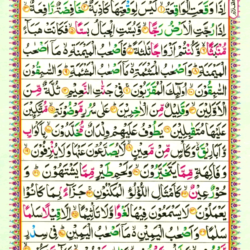 اِذَا وَقَعَتِ الْوَاقِعَةُ ۙ لَيْسَ لِوَقْعَتِهَا كَاذِبَةٌ ۘ خَافِضَةٌ رَّافِعَةٌ ۙ
اِذَا رُجَّتِ الْاَرْضُ رَجًّا ۙ وَّبُسَّتِ الْجِبَالُ بَسًّا ۙ فَكَانَتْ هَبَآءً
مُّنْۢبَثًّا ۙ وَّكُنْتُمْ اَزْوَاجًا ثَلٰثَةً ؕ فَاَصْحٰبُ الْمَيْمَنَةِ ۙ مَاۤ اَصْحٰبُ
الْمَيْمَنَةِ ؕ وَاَصْحٰبُ الْمَشْـَٔمَةِ ۙ مَاۤ اَصْحٰبُ الْمَشْـَٔمَةِ ؕ وَالسّٰبِقُوْنَ
السّٰبِقُوْنَ ۚ اُولٰٓئِكَ الْمُقَرَّبُوْنَ ۚ فِيْ جَنّٰتِ النَّعِيْمِ ثُلَّةٌ مِّنَ
الْاَوَّلِيْنَ ۙ وَقَلِيْلٌ مِّنَ الْاٰخِرِيْنَ ؕ عَلٰى سُرُرٍ مَّوْضُوْنَةٍ ۙ مُّتَّكِـِٕيْنَ
عَلَيْهَا مُتَقٰبِلِيْنَ يَطُوْفُ عَلَيْهِمْ وِلْدَانٌ مُّخَلَّدُوْنَ ۙ بِاَكْوَابٍ
وَّاَبَارِيْقَ ۙ وَكَاْسٍ مِّنْ مَّعِيْنٍ ۙ لَّا يُصَدَّعُوْنَ عَنْهَا وَلَا يُنْزِفُوْنَ ۙ
وَفَاكِهَةٍ مِّمَّا يَتَخَيَّرُوْنَ ۙ وَلَحْمِ طَيْرٍ مِّمَّا يَشْتَهُوْنَ ؕ وَ
حُوْرٌ عِيْنٌ ۙ كَاَمْثَالِ اللُّؤْلُؤِ الْمَكْنُوْنِ ۚ جَزَآءًۢ بِمَا كَانُوْا
يَعْمَلُوْنَ لَا يَسْمَعُوْنَ فِيْهَا لَغْوًا وَّلَا تَاْثِيْمًا ۙ اِلَّا قِيْلًا سَلٰمًا
سَلٰمًا وَاَصْحٰبُ الْيَمِيْنِ ۙ مَاۤ اَصْحٰبُ الْيَمِيْنِ ؕ فِيْ سِدْرٍ